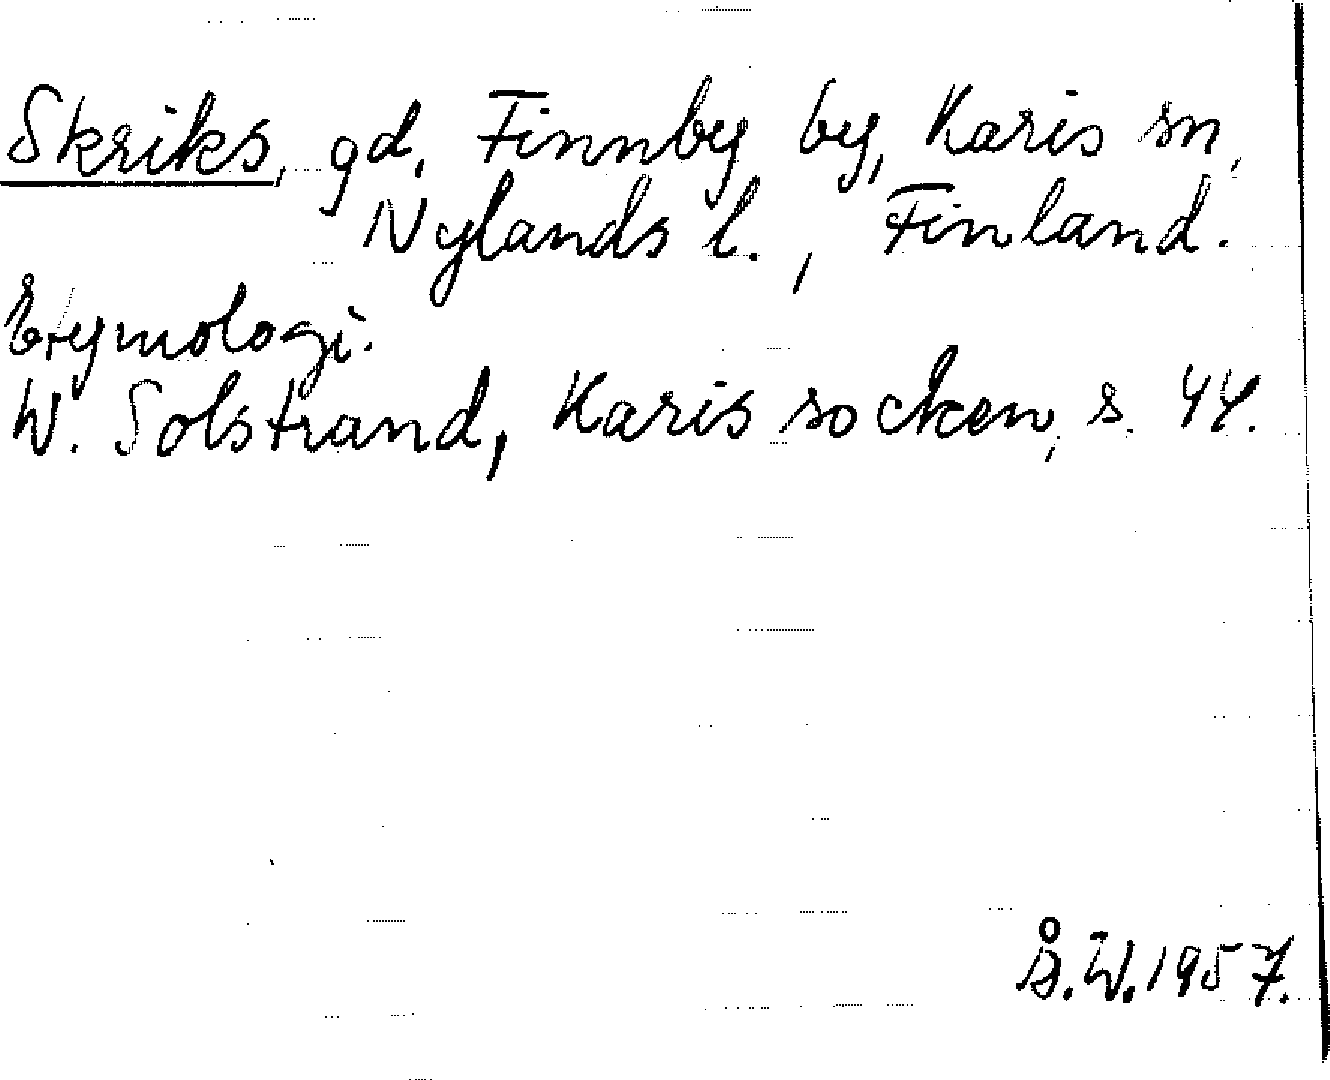 Skriks, gd, Finnby by, Karis sn,
Nylands l., Finland.
Etymologi.
W. Solstrand, Karis socken, s. 44.
Å.W. 1957.